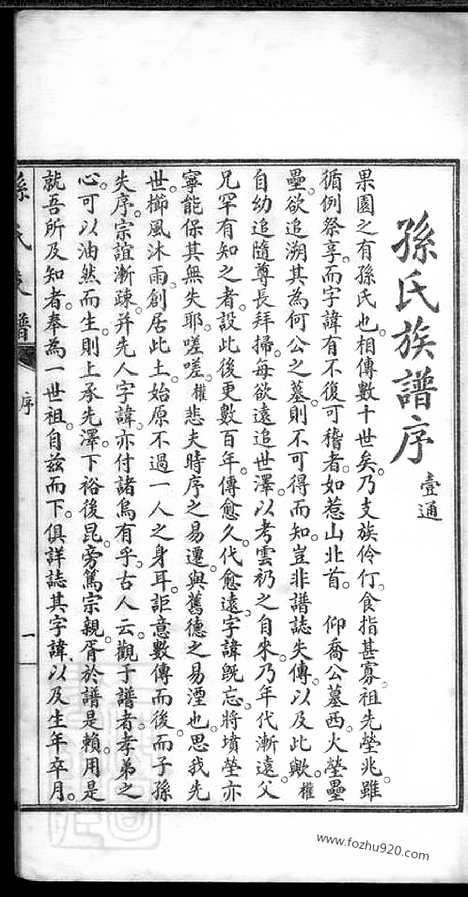 孫氏族譜序 壹通
果園之有孫氏也。相傳數十世矣。乃支族伶仃。食指甚寡。祖先塋兆。雖
循例祭享。而字諱有不復可稽者。如惹山北首。 仰喬公墓西。火塋壘
壘。欲追溯其為何公之墓。則不可得而知。豈非譜誌失傳。以及此歟。權
自幼追隨尊長拜掃。每欲遠追世澤。以考雲礽之自來。乃年代漸遠。父
兄罕有知之者。設此後更數百年。傳愈久。代愈遠。字諱既忘。將墳塋亦
寧能保其無失耶。嗟嗟。權悲夫時序之易遷。與舊德之易湮也。思我先
世櫛風沐雨。創居此土。始原不過一人之身耳。詎意數傳而後。而子孫
失序。宗誼漸疎。并先人字諱。亦付諸烏有乎。古人云。觀于譜者。孝弟之
心。可以油然而生。則上承先澤。下裕後昆。旁篤宗親。胥於譜是賴。用是
就吾所及知者。奉為一世祖。自茲而下。俱詳誌其字諱。以及生年卒月。
孫氏族譜 序 一
www.fozhu920.com